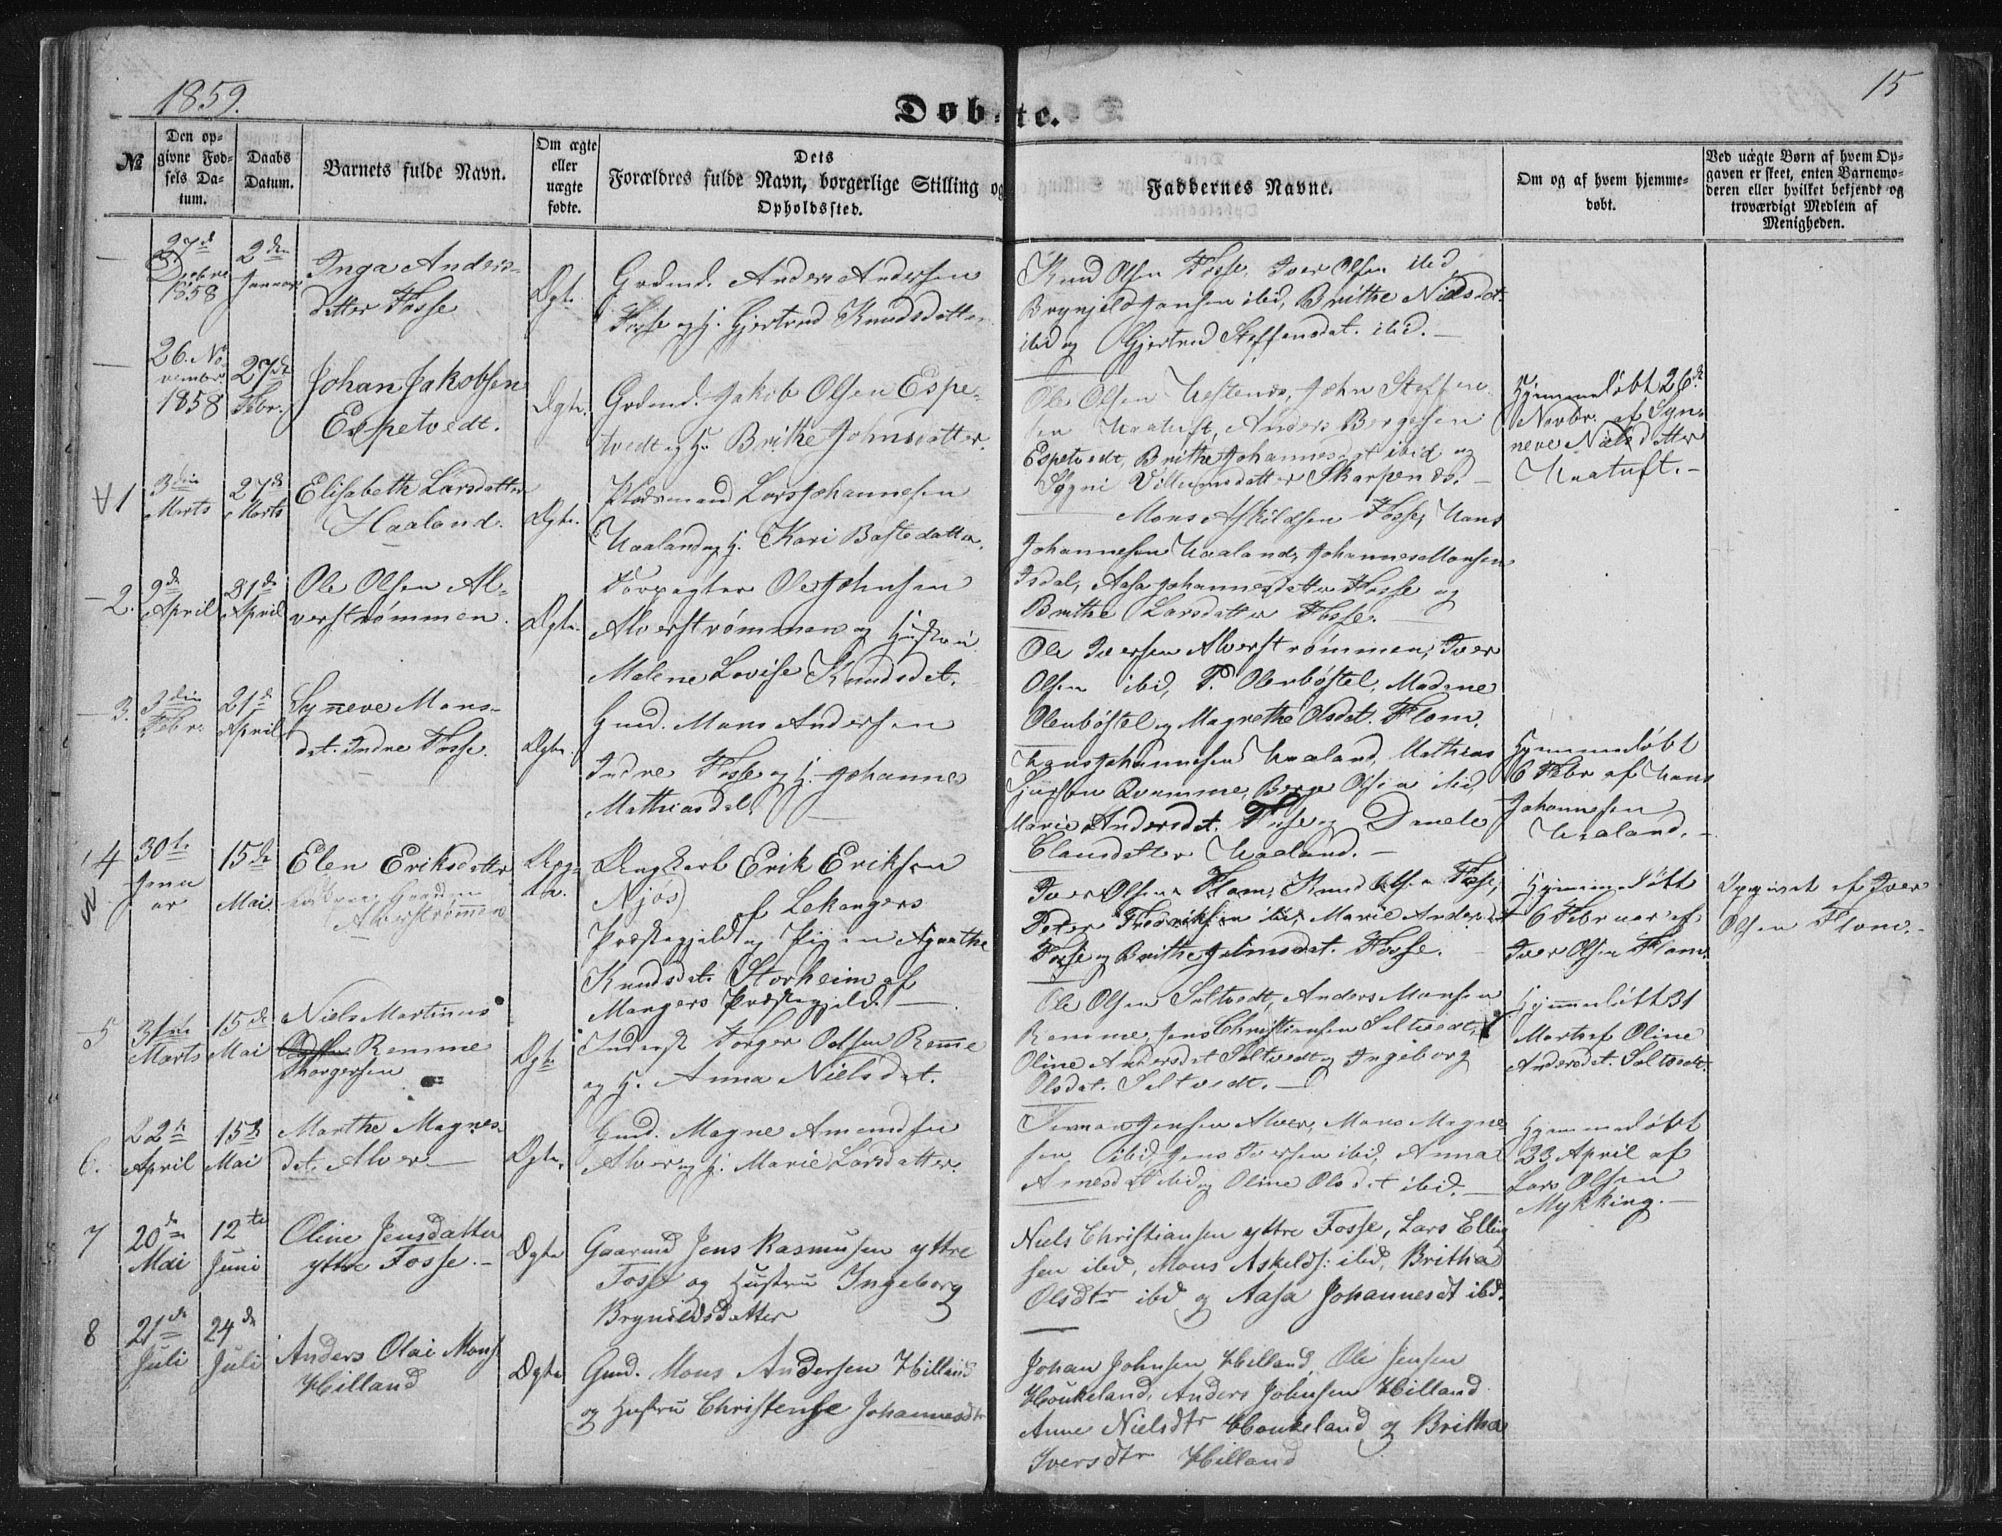 1859.
15
Døbte.
№
Den opgivne Fødsels Datum.
Daabs Datum.
Barnets fulde Navn.
Om ægte eller uægte fødte.
Dets Forældres fulde Navn, borgerlige Stilling og Opholdssted.
Faddernes Navne.
Om og af hvem hjemmedøbt.
Ved uægte Børn af hvem Opgaven er skeet, enten Barnemoderen eller hvilket bekjendt og troværdigt Medlem af Menigheden.
27de
1858
2den
Januar
Inga Anders-
datter Fosse
Ægte
Grdmd. Anders Andersen
Fosse og H. Gjertrud Knudsdatter
Knud Olsen Fosse, Iver Olsen ibid
Brynjeld Hansen ibid, Brithe Nielsdat.
ibid og Gjertrud Steffensdat. ibid.
26. No-
vember
1858
27de
Febr.
Johan Jakobsen
Espetvedt.
Ægte.
Grdmd. Jakob Olsen Espe-
tvedt og H. Brithe Johnsdatter.
Ole Olsen Høstenes, John Steffen-
sen Haatuft, Anders Bergesen
Espetvedt, Brithe Johannesdat ibid og
Sygni Villumsdatter Skarpenes.
Hjemmedøbt 26de
Novbr. af Syn-
neve Nielsdatter
Haatuft.
1
3die
Marts
27de
Marts
Elisabeth Larsdatter
Haaland.
Ægte.
Pladsmand Lars Johannesen
Haaland og H. Kari Bastedatter.
Mons Askildsen Fosse, Hans
Johannesen Haaland, Johannes Monsen
Isdal, Aasa Johannesdatter Fosse og
Brithe Larsdatter Fosse.
2.
9de
April
21de
April
Ole Olsen Al-
verstrømmen.
Ægte.
Forpagter Ole Johnsen
Alverstrømmen og Hustru
Malene Lovise Knudsdat.
Ole Iversen Alverstrømmen, Iver
Olsen ibid, P. Olenbøstel, Madme
Olenbøstel og Magrethe Olsdat. Flom.
3.
3die
Febr.
21de
April
Synneve Mons-
dat. Indre Fosse.
Ægte.
Grmd. Mons Andersen
Indre Fosse og H. Johanne
Mathiasdat.
Hans Johannesen Haaland, Mathias
Qvamme, Berge Olsen ibid,
Marie Andersdat. Fosse og Danele
Clausdatter Haaland.
Hjemmedøbt
6 Febr af Hans
Johannesen
Haaland.
4
30te
Janu
ar
15de
Mai.
Elen Eriksdatter
Alverstrømmen
Uæg-
te.
Ungkarl Erik Eriksen
Njøs af Lekangers
Præstegjeld og Pigen Agnethe
Knudsdat. Storheim af
Mangers Præstegjeld.
Iver Olsen Flom, Knud Olsen Fosse,
Peter Fredriksen ibid, Marie Andersdt
Fosse og Brithe Johnsdat. Fosse.
Hjemmedøbt
6 Februar af
Iver Olsen Flom.
Opgivet af Iver
Olsen Flom.
5
31te
Marts
15de
Mai
Niels Martinus
Remme
Thorgersen
Ægte
Inderst Torger Olsen Remme
og H. Anna Nielsdat.
Ole Olsen Seltvedt, Anders Monsen
Remme, Jens Christiansen Seltvedt,
Oline Andersdat Seltvedt og Ingeborg
Olsdat. Seltvedt.
Hjemmedøbt 31
Marts af Oline
Andersdat. Seltvedt.
6.
22de
April
15de
Mai
Marthe Magnes-
dat. Alver
Ægte.
Grmd. Magne Amundsen
Alver og H. Marie Larsdatter.
Jensen Alver, Mons Magne-
sen ibid, Jens Iversen ibid, Anna
Arnesdat ibid og Oline Olsdat ibid.
Hjemmedøbt
23 April af
Lars Olsen
Mykking.
7
20de
Mai
12te
Juni
Oline Jensdatter
yttre Fosse.
Ægte
Gaarmd Jens Rasmusen yttre
Fosse og Hustru Ingeborg
Brynildsdatter
Niels Christiansen yttre Fosse, Lars Elling
sen ibid, Mons Askelds: ibid, Britha
Olsdtr ibid og Aasa Johannesdt ibd.
8
21de
Juli
24de
Juli
Anders Olai Mons
Hilland
Ægte
Gmd. Mons Andersen Hilland
og Hustru Christense Johannesdtr
Johan Johnsen Hilland, Ole Jensen
Houkeland, Anders Johnsen Hilland
Anne Nielsdtr Houkeland og Britha
Iversdtr Hilland